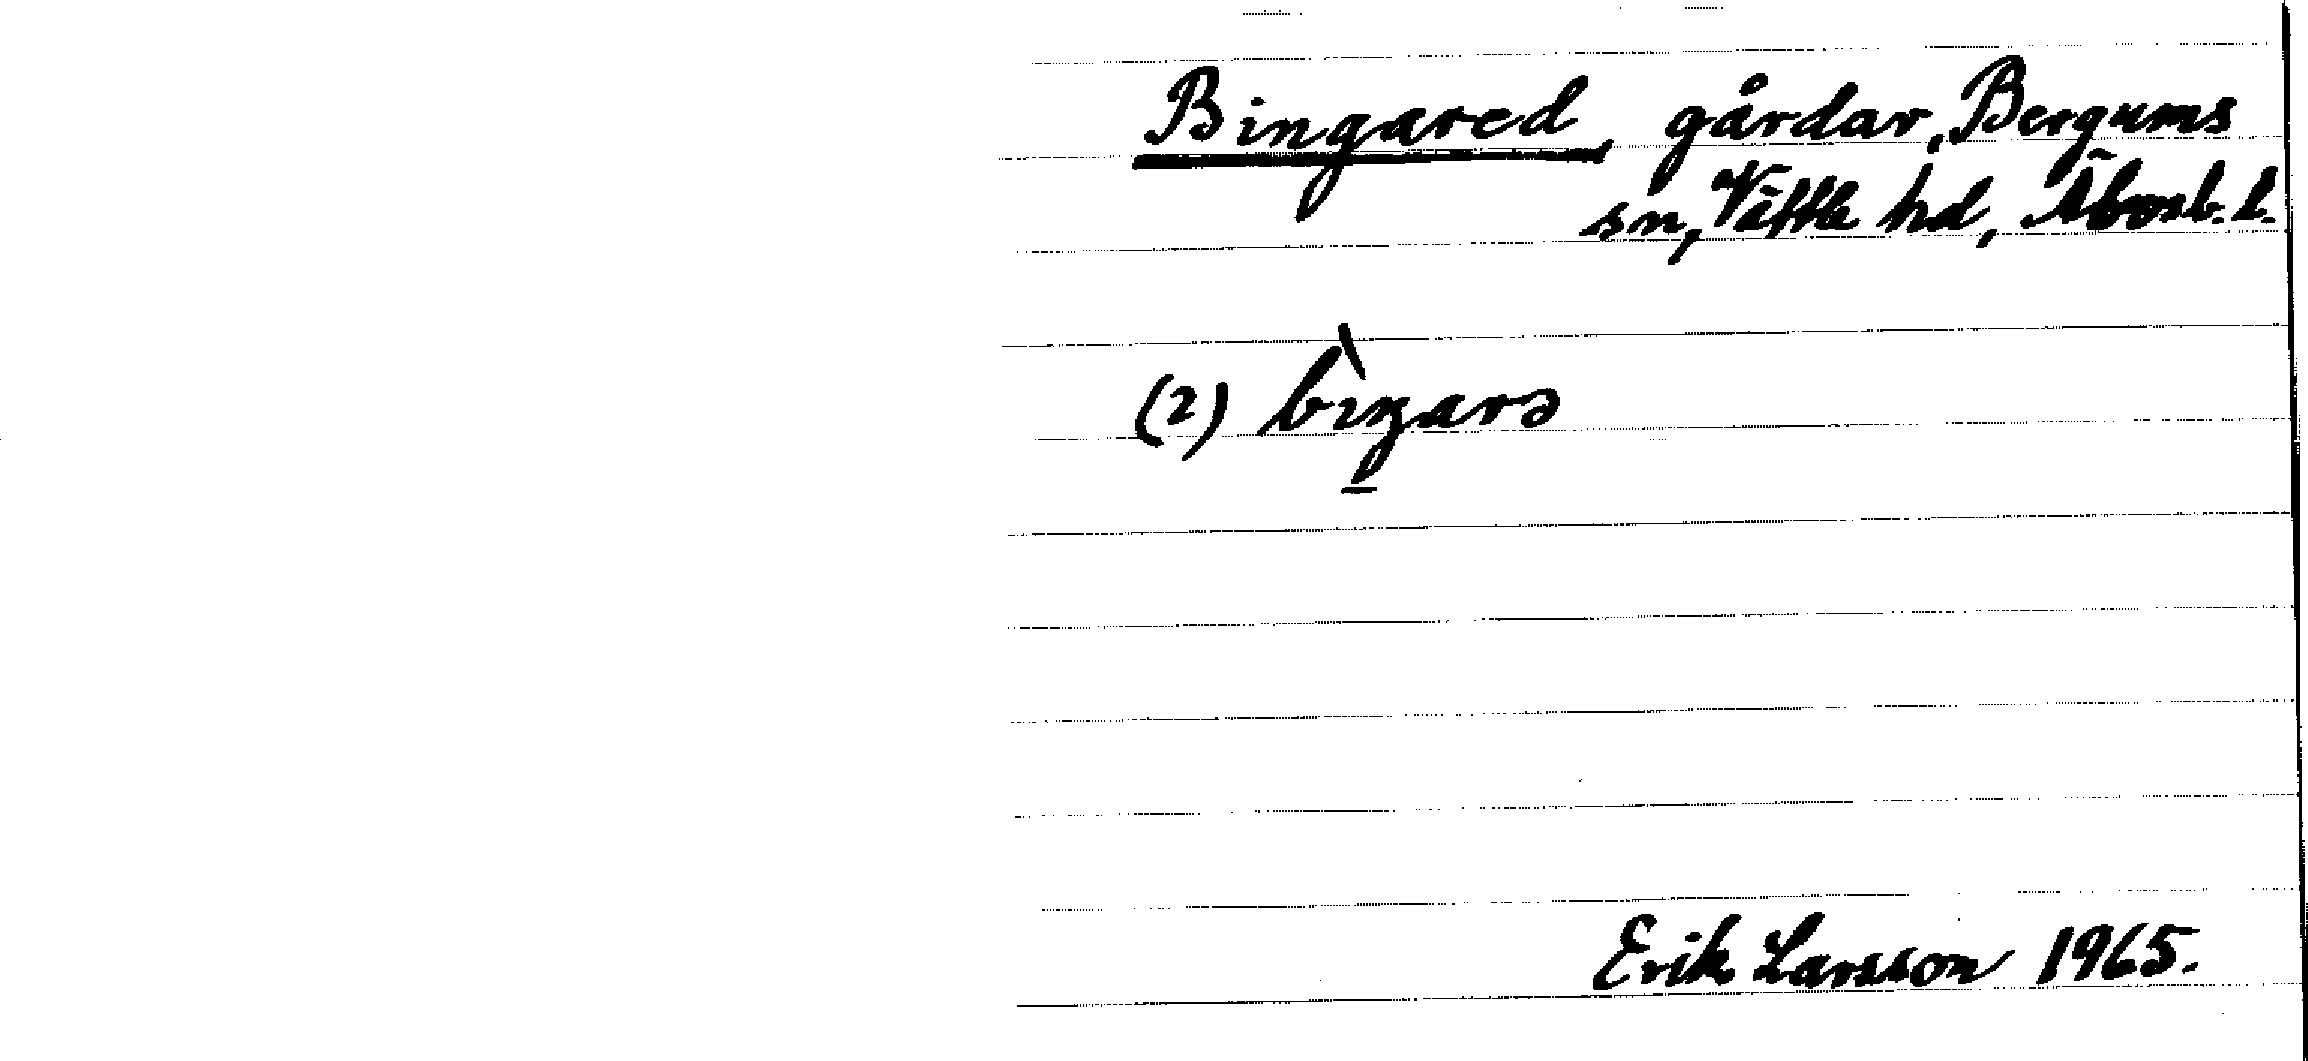 Bingared, gårdar, Bergums
sn, Vättle hd, Älvsb. l.
(2) bìŋarə
Erik Larsson 1965.